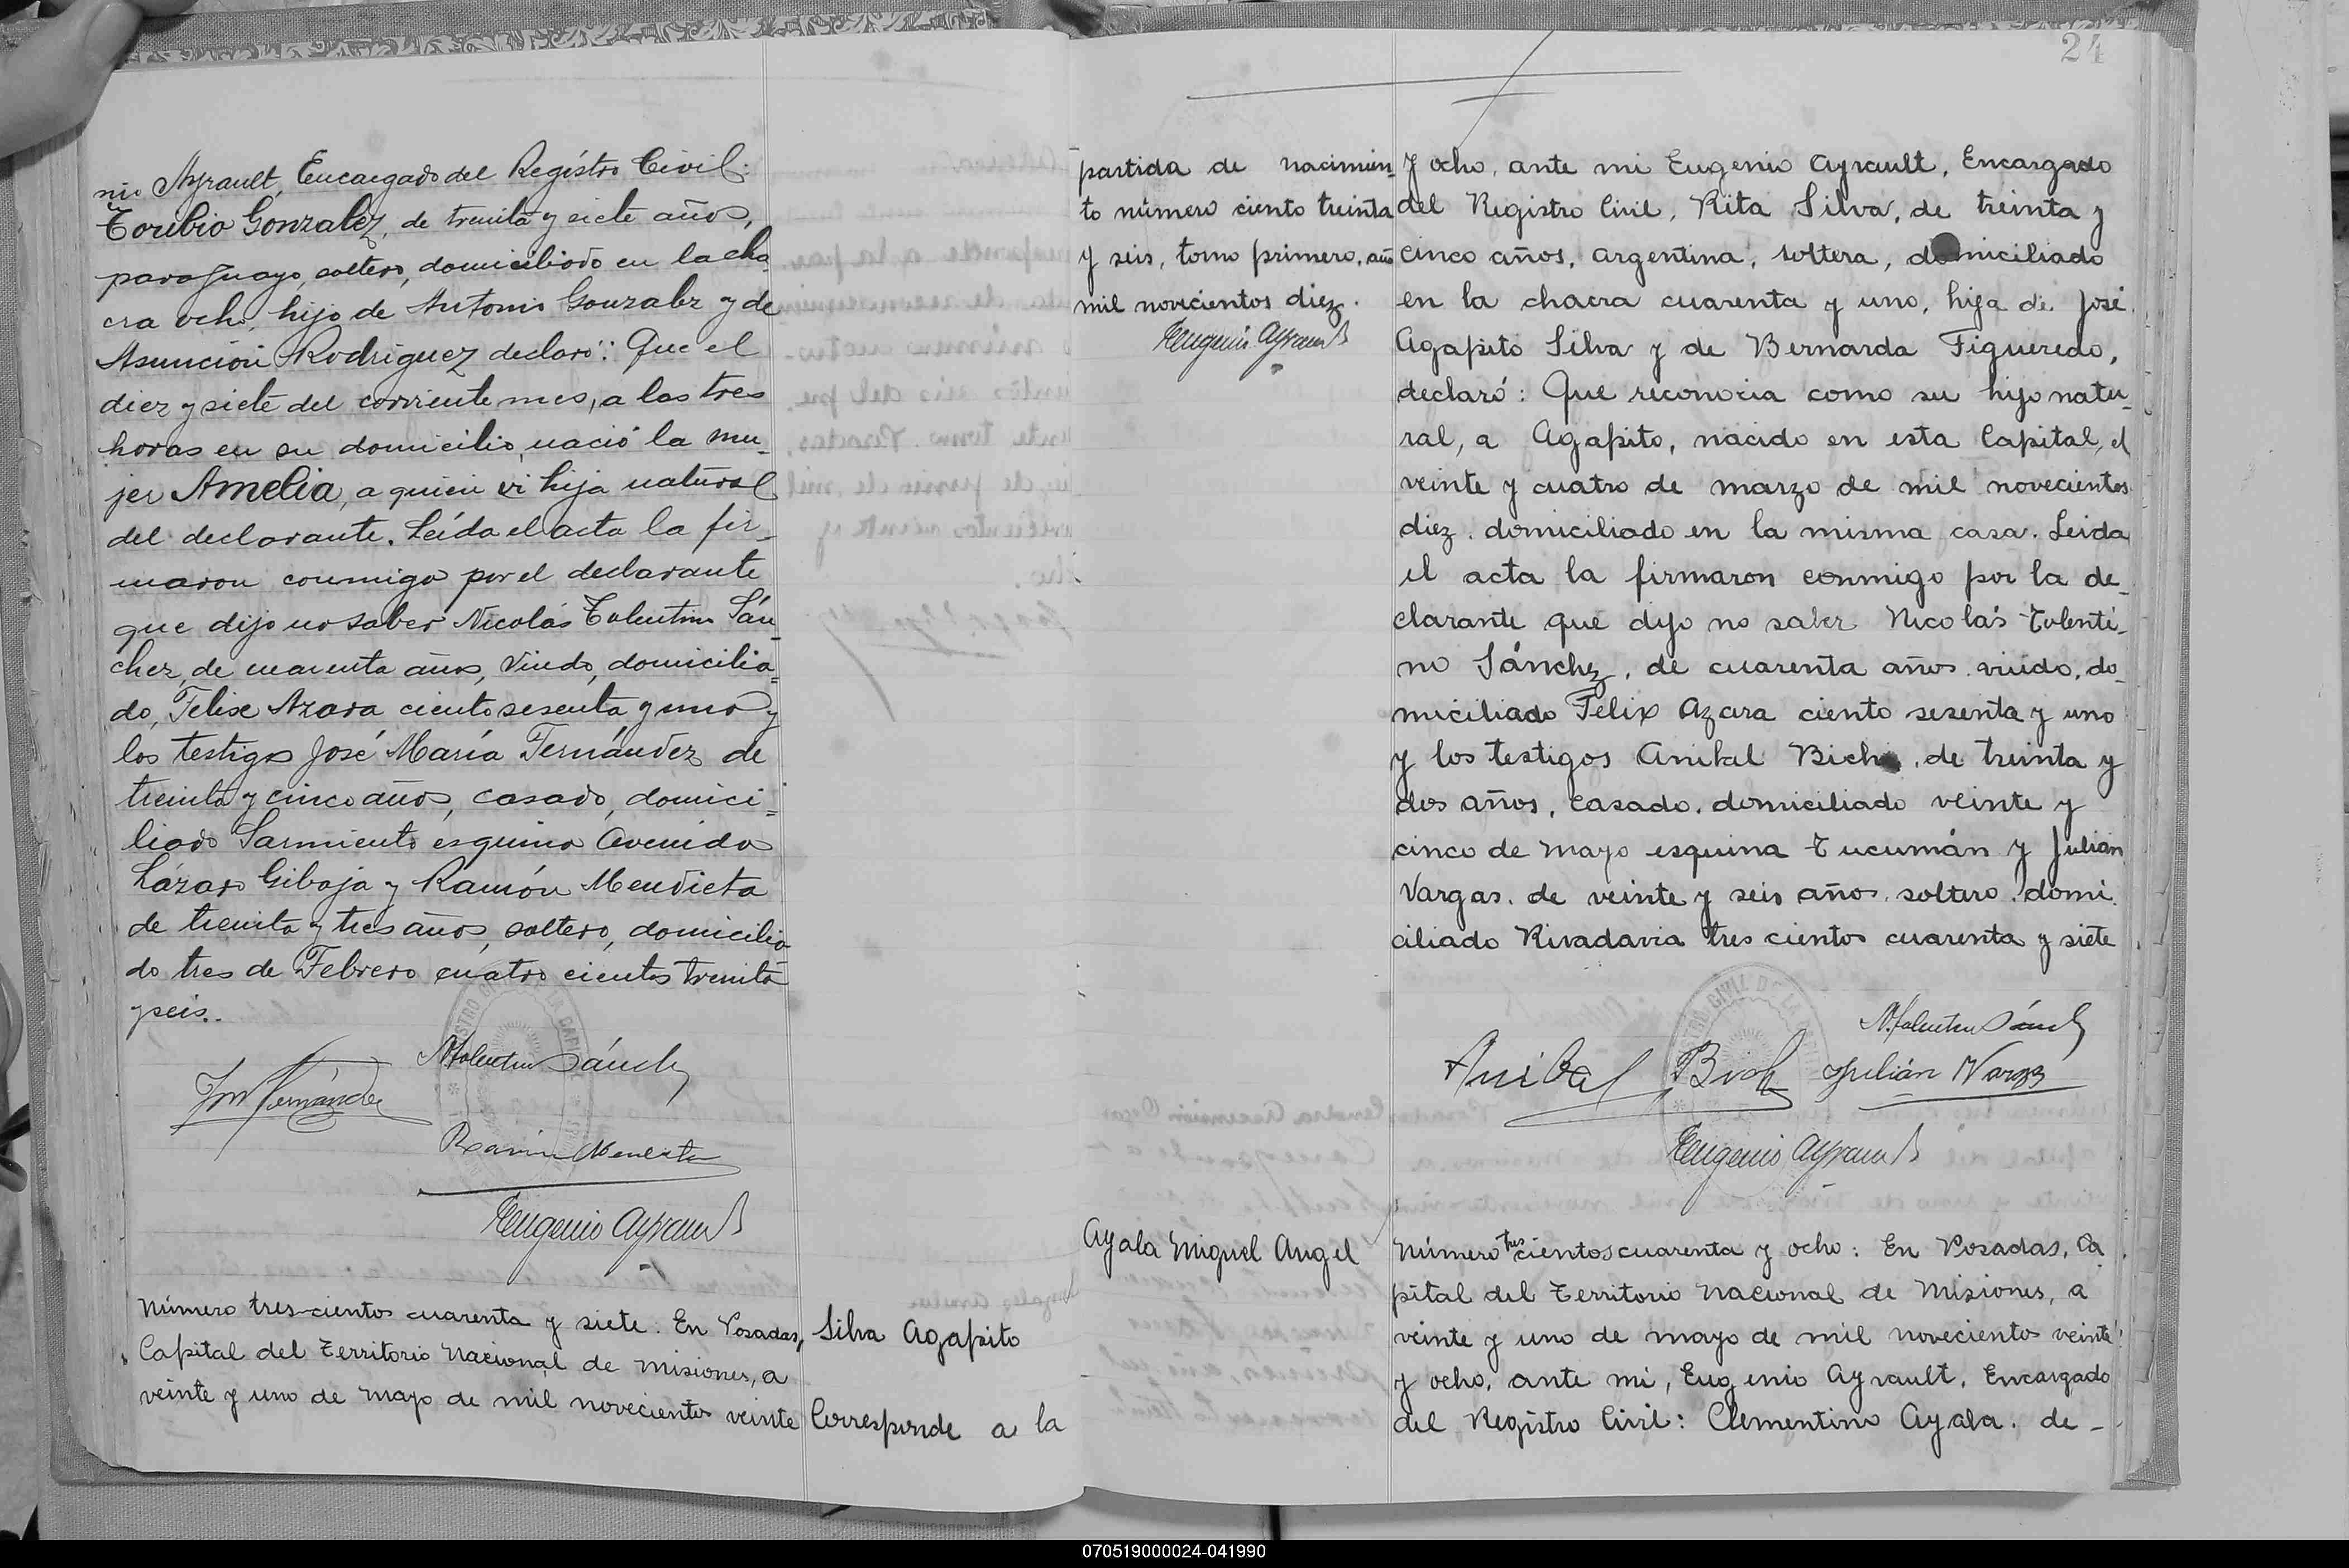 nio Ayrault, Encargado del Registro Civil:
Toribio Gonzalez, de treinta y siete años,
paraguayo, soltero, domiciliado en la cha
cra ocho, hijo de Antonio Gonzalez y de
Asunción Rodriguez declaró: Que el
diez y siete del corriente mes, a las tres
horas en su domicilio, nació la mu-
jer Amelia, a quien vi hija natural
del declarante. Leída el acta la fir-
maron conmigo por el declarante
que dijo no saber Nicolás Tolentino Sán-
chez, de cuarenta años, viudo, domicilia-
do, Felix Azara ciento sesenta y uno y
los testigos José María Fernández de
treinta y cinco años, casado, domici-
liado Sarmiento esquina Avenida
Lázaro Gibaja y Ramón Mendieta
de treinta y tres años, soltero, domicilia-
do tres de Febrero cuatro cientos treinta
y seis.
N Tolentino Sánchz
JM Fernández
Ramón Mendieta
Eugenio Ayrault
Número tres-cientos cuarenta y siete. En Posadas,
Capital del Territorio Nacional de Misiones, a
veinte y uno de mayo de mil novecientos veinte
Silva Agapito
Corresponde a la
24
partida de nacimien-
to número ciento treinta
y seis, tomo primero, año
mil novecientos diez.
Eugenio Ayrault
y ocho, ante mi Eugenio Ayrault, Encargado
del Registro Civil, Rita Silva, de treinta y
cinco años, argentina, soltera, domiciliado
en la chacra cuarenta y uno, hija de José
Agapito Silva y de Bernarda Figueredo,
declaró: Que reconocia como su hijo natu-
ral, a Agapito, nacido en esta Capital, el
veinte y cuatro de marzo de mil novecientos
diez. domiciliado en la misma casa. Leida
el acta la firmaron conmigo por la de-
clarante que dijo no saber Nicolás Tolenti-
no Sánchez, de cuarenta años. viudo, do-
miciliado Felix Azara ciento sesenta y uno
y los testigos Anibal Bich, de treinta y
dos años, casado, domiciliado veinte y
cinco de mayo esquina Tucumán y Julián
Vargas, de veinte y seis años, soltero, domi-
ciliado Rivadavia tres cientos cuarenta y siete
N. Tolentino Sánchz
Anibal Bich Julián Vargas
Eugenio Ayrault
Ayala Miguel Angel
Número tres cientos cuarenta y ocho: En Posadas, Ca
pital del Territorio Nacional de Misiones, a
veinte y uno de mayo de mil novecientos veinte
y ocho, ante mi, Eugenio Ayrault, Encargado
del Registro Civil: Clementino Ayala. de -
070519000024-041990